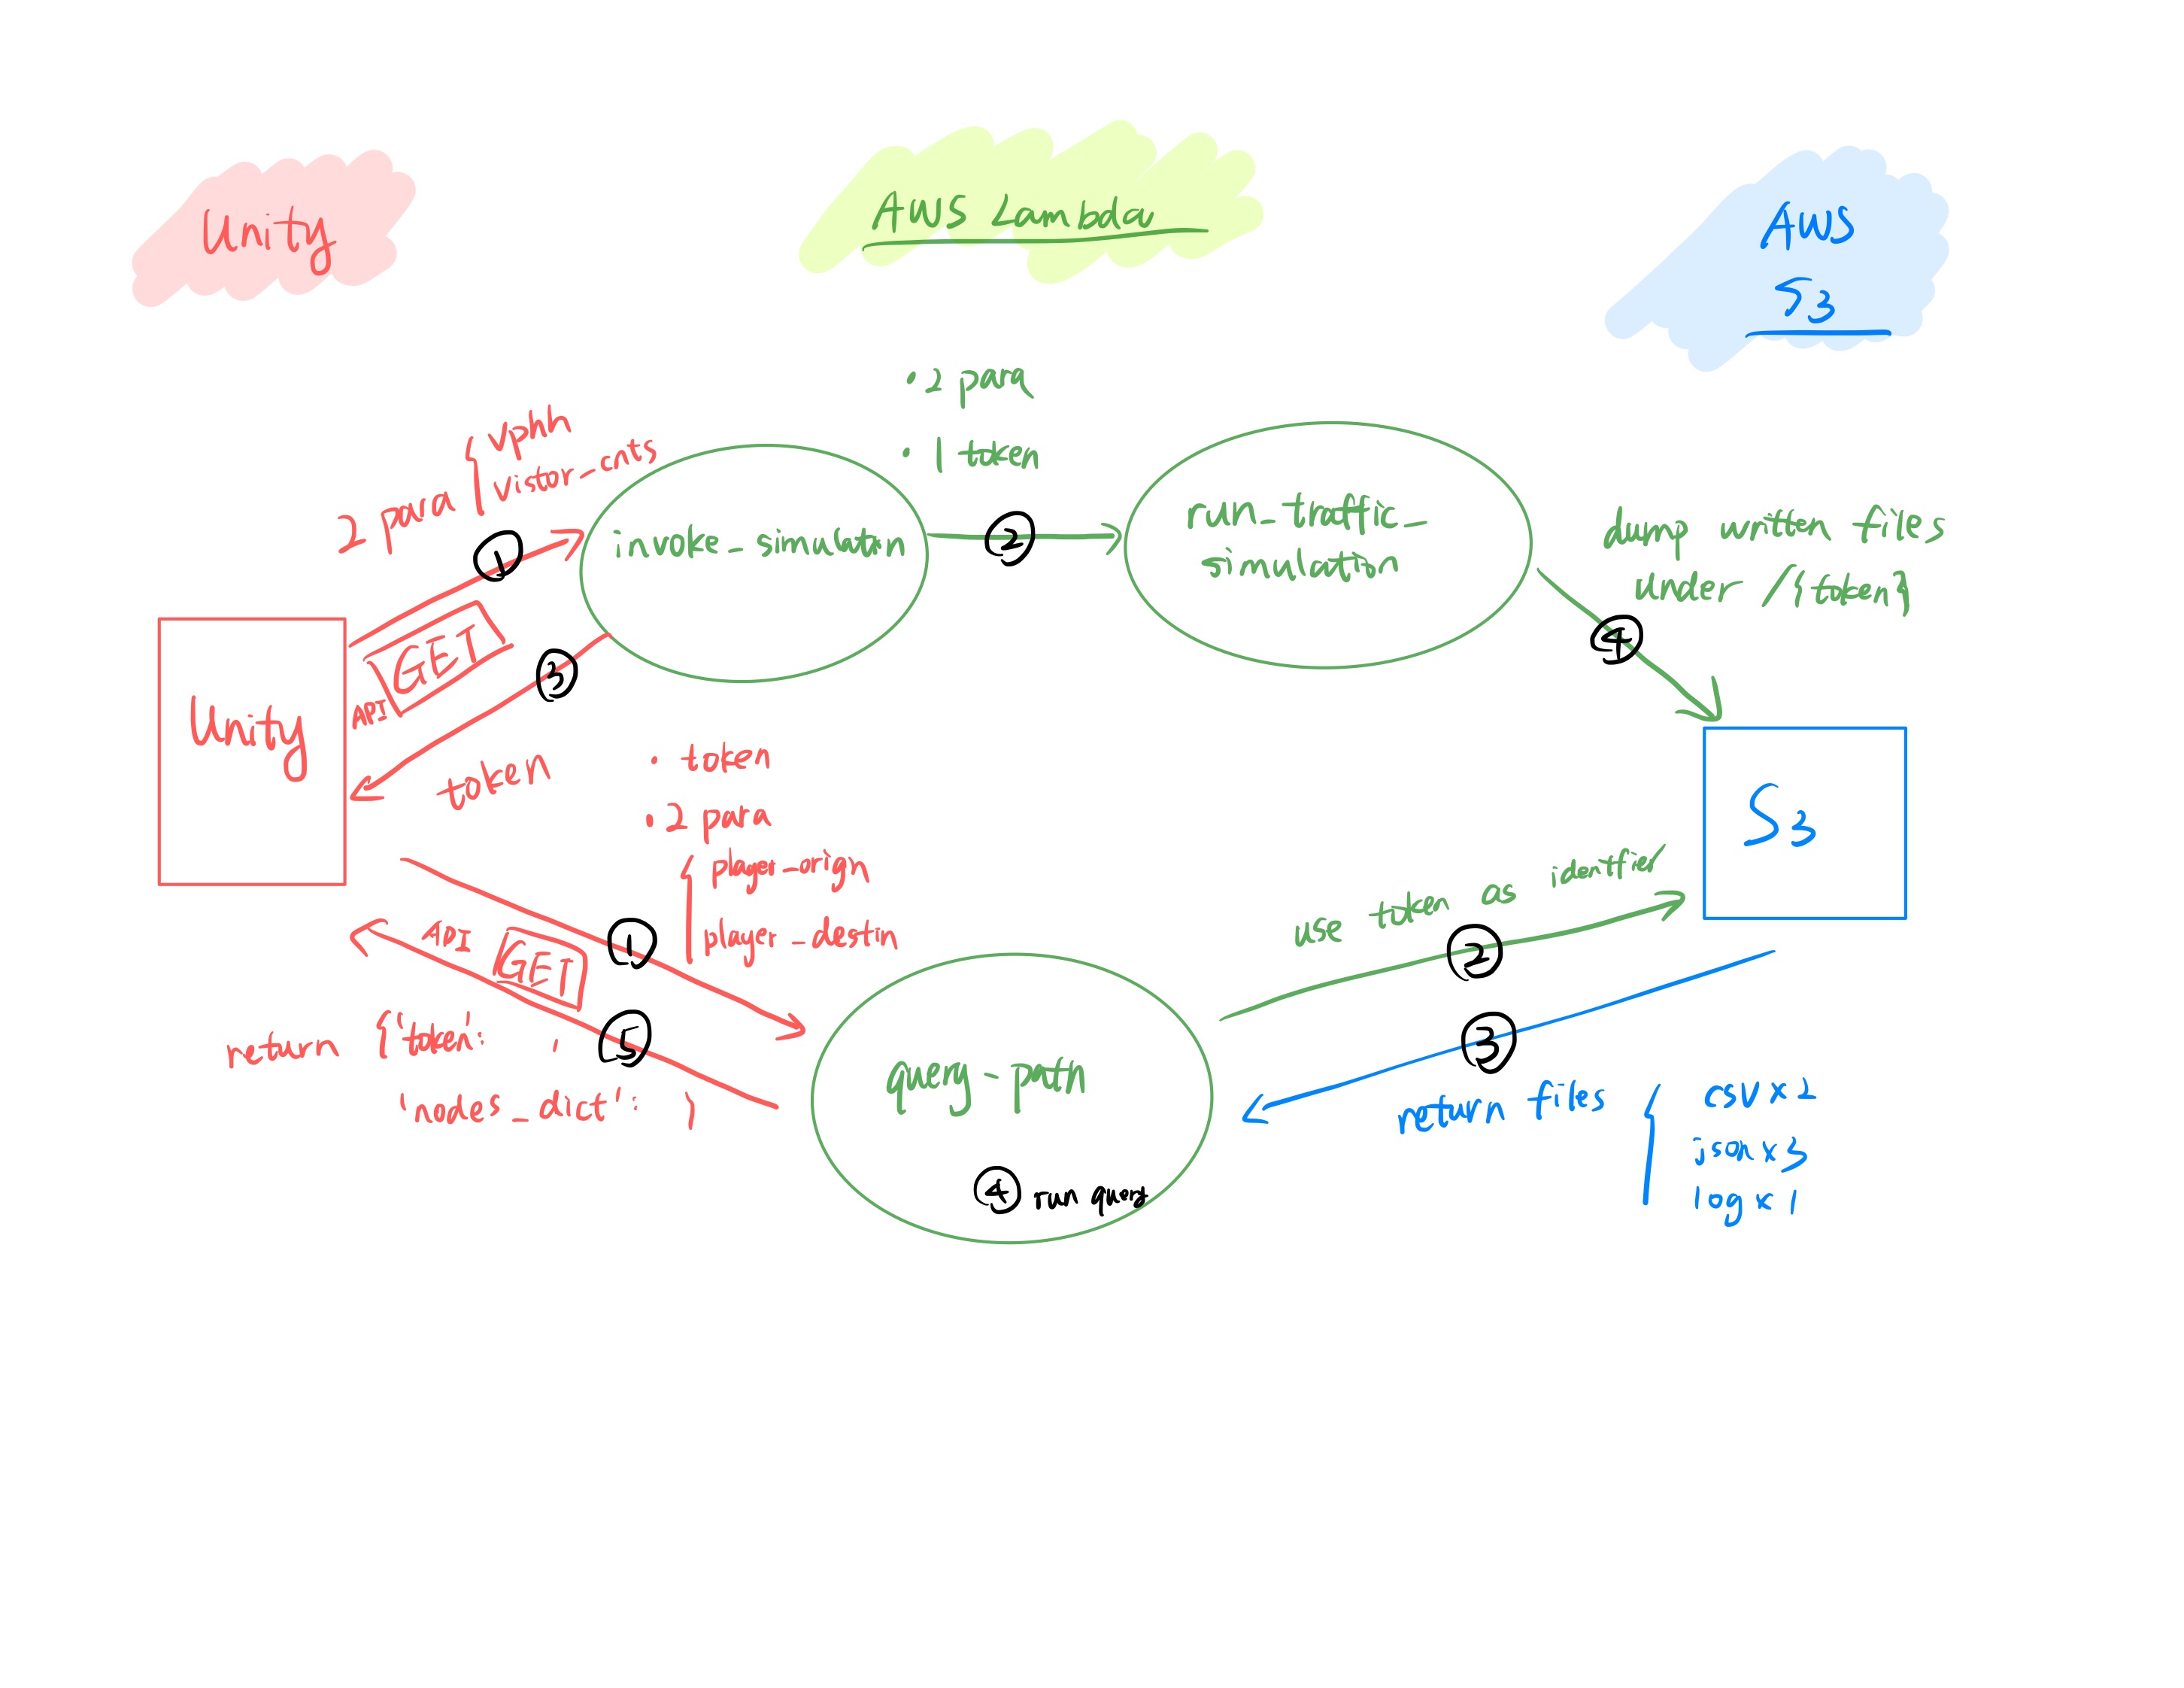 Unity
AWS Lambda
AWS
S3
2 para
vphh
visitor-cnts
①
API
GET
③
token
invoke_simulation
· 2 para
· 1 token
②
run_traffic_
simulation
dump written files
under /{token}
④
Unity
S3
· token
· 2 para
player_origin
player_destin
①
API
GET
⑤
return { 'token': ,
'nodes_dict': }
query-path
④ run query
use token as identifier
②
③
return files
csv x 2
json x 3
log x 1